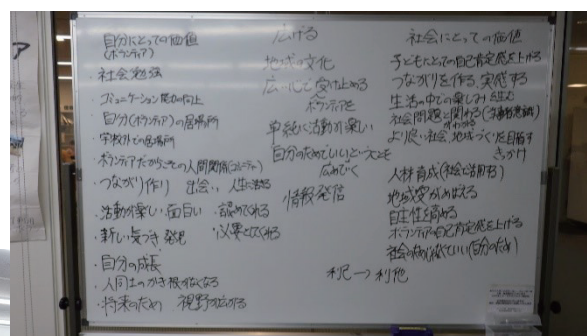 自分にとっての価値
(ボランティア)
・社会勉強
・コミュニケーション能力の向上
・自分(ボランティア)の居場所
・学校外での居場所
・ボランティアだからこその人間関係
・つながり作り 出会い 人生に
・活動が楽しい 面白い 認めてくれる
・新しい気づき 発見 必要としてくれる
・自分の成長
・人同士のかき根がなくなる
・将来のため 視野が広がる
広げる
地域の文化
広い心で受け止める
ボランティアを
単純に活動が楽しい
自分のためでいいということを
広めていく
情報発信
利己→利他
社会にとっての価値
子どもにとっての自己肯定感を上げる
つながりを作る、実感する
生活の中での楽しみを
社会問題と関わる
より良い社会、地域づくりを目指す
きっかけ
人材育成(社会で活用する)
地域愛がめばえる
自主性を高める
ボランティアの自己肯定感を上げる
社会の
(自分のため)